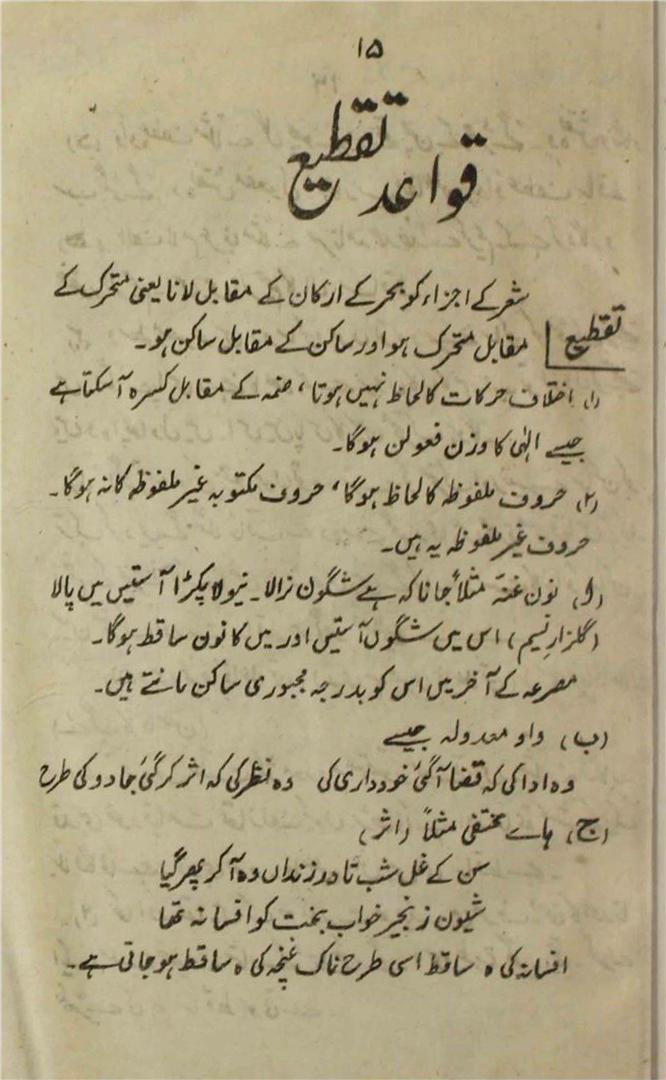 ۱۵
قواعد تقطیع
شعر کے اجزاء کو بحر کے ارکان کے مقابل لانا یعنی متحرک کے
تقطیع
مقابل متحرک ہو اور ساکن کے مقابل ساکن ہو۔
(۱) اختلاف حرکات کا لحاظ نہیں ہوتا، ضمہ کے مقابل کسرہ آسکتا ہے
جیسے الہٰی کا وزن فعولن ہوگا۔
(۲) حروف ملفوظہ کا لحاظ ہوگا، حروف مکتوبہ غیر ملفوظہ کا نہ ہوگا۔
حروف غیر ملفوظہ یہ ہیں۔
(ا) نون غنہ مثلاً جانا کہ ہے شگون نرالا۔ نیولا پکڑا آستیں میں پالا
(گلزار نسیم) اس میں شگوں آستیں اور میں کا نون ساقط ہوگا۔
مصرعہ کے آخر میں اس کو بدرجہ مجبوری ساکن مانتے ہیں۔
(ب) واو معدولہ جیسے
وہ ادا کی کہ قضا آگئی خودداری کی وہ نظر کی کہ اثر کر گئی جادو کی طرح
(ج) ہاے مختفی مثلاً (اثر)
سن کے غل شب تا در زنداں وہ آ کر پھر گیا
شیون زنجیر خواب بخت کو افسانہ تھا
افسانہ کی ہ ساقط اسی طرح ناک غنچہ کی ہ ساقط ہو جاتی ہے۔